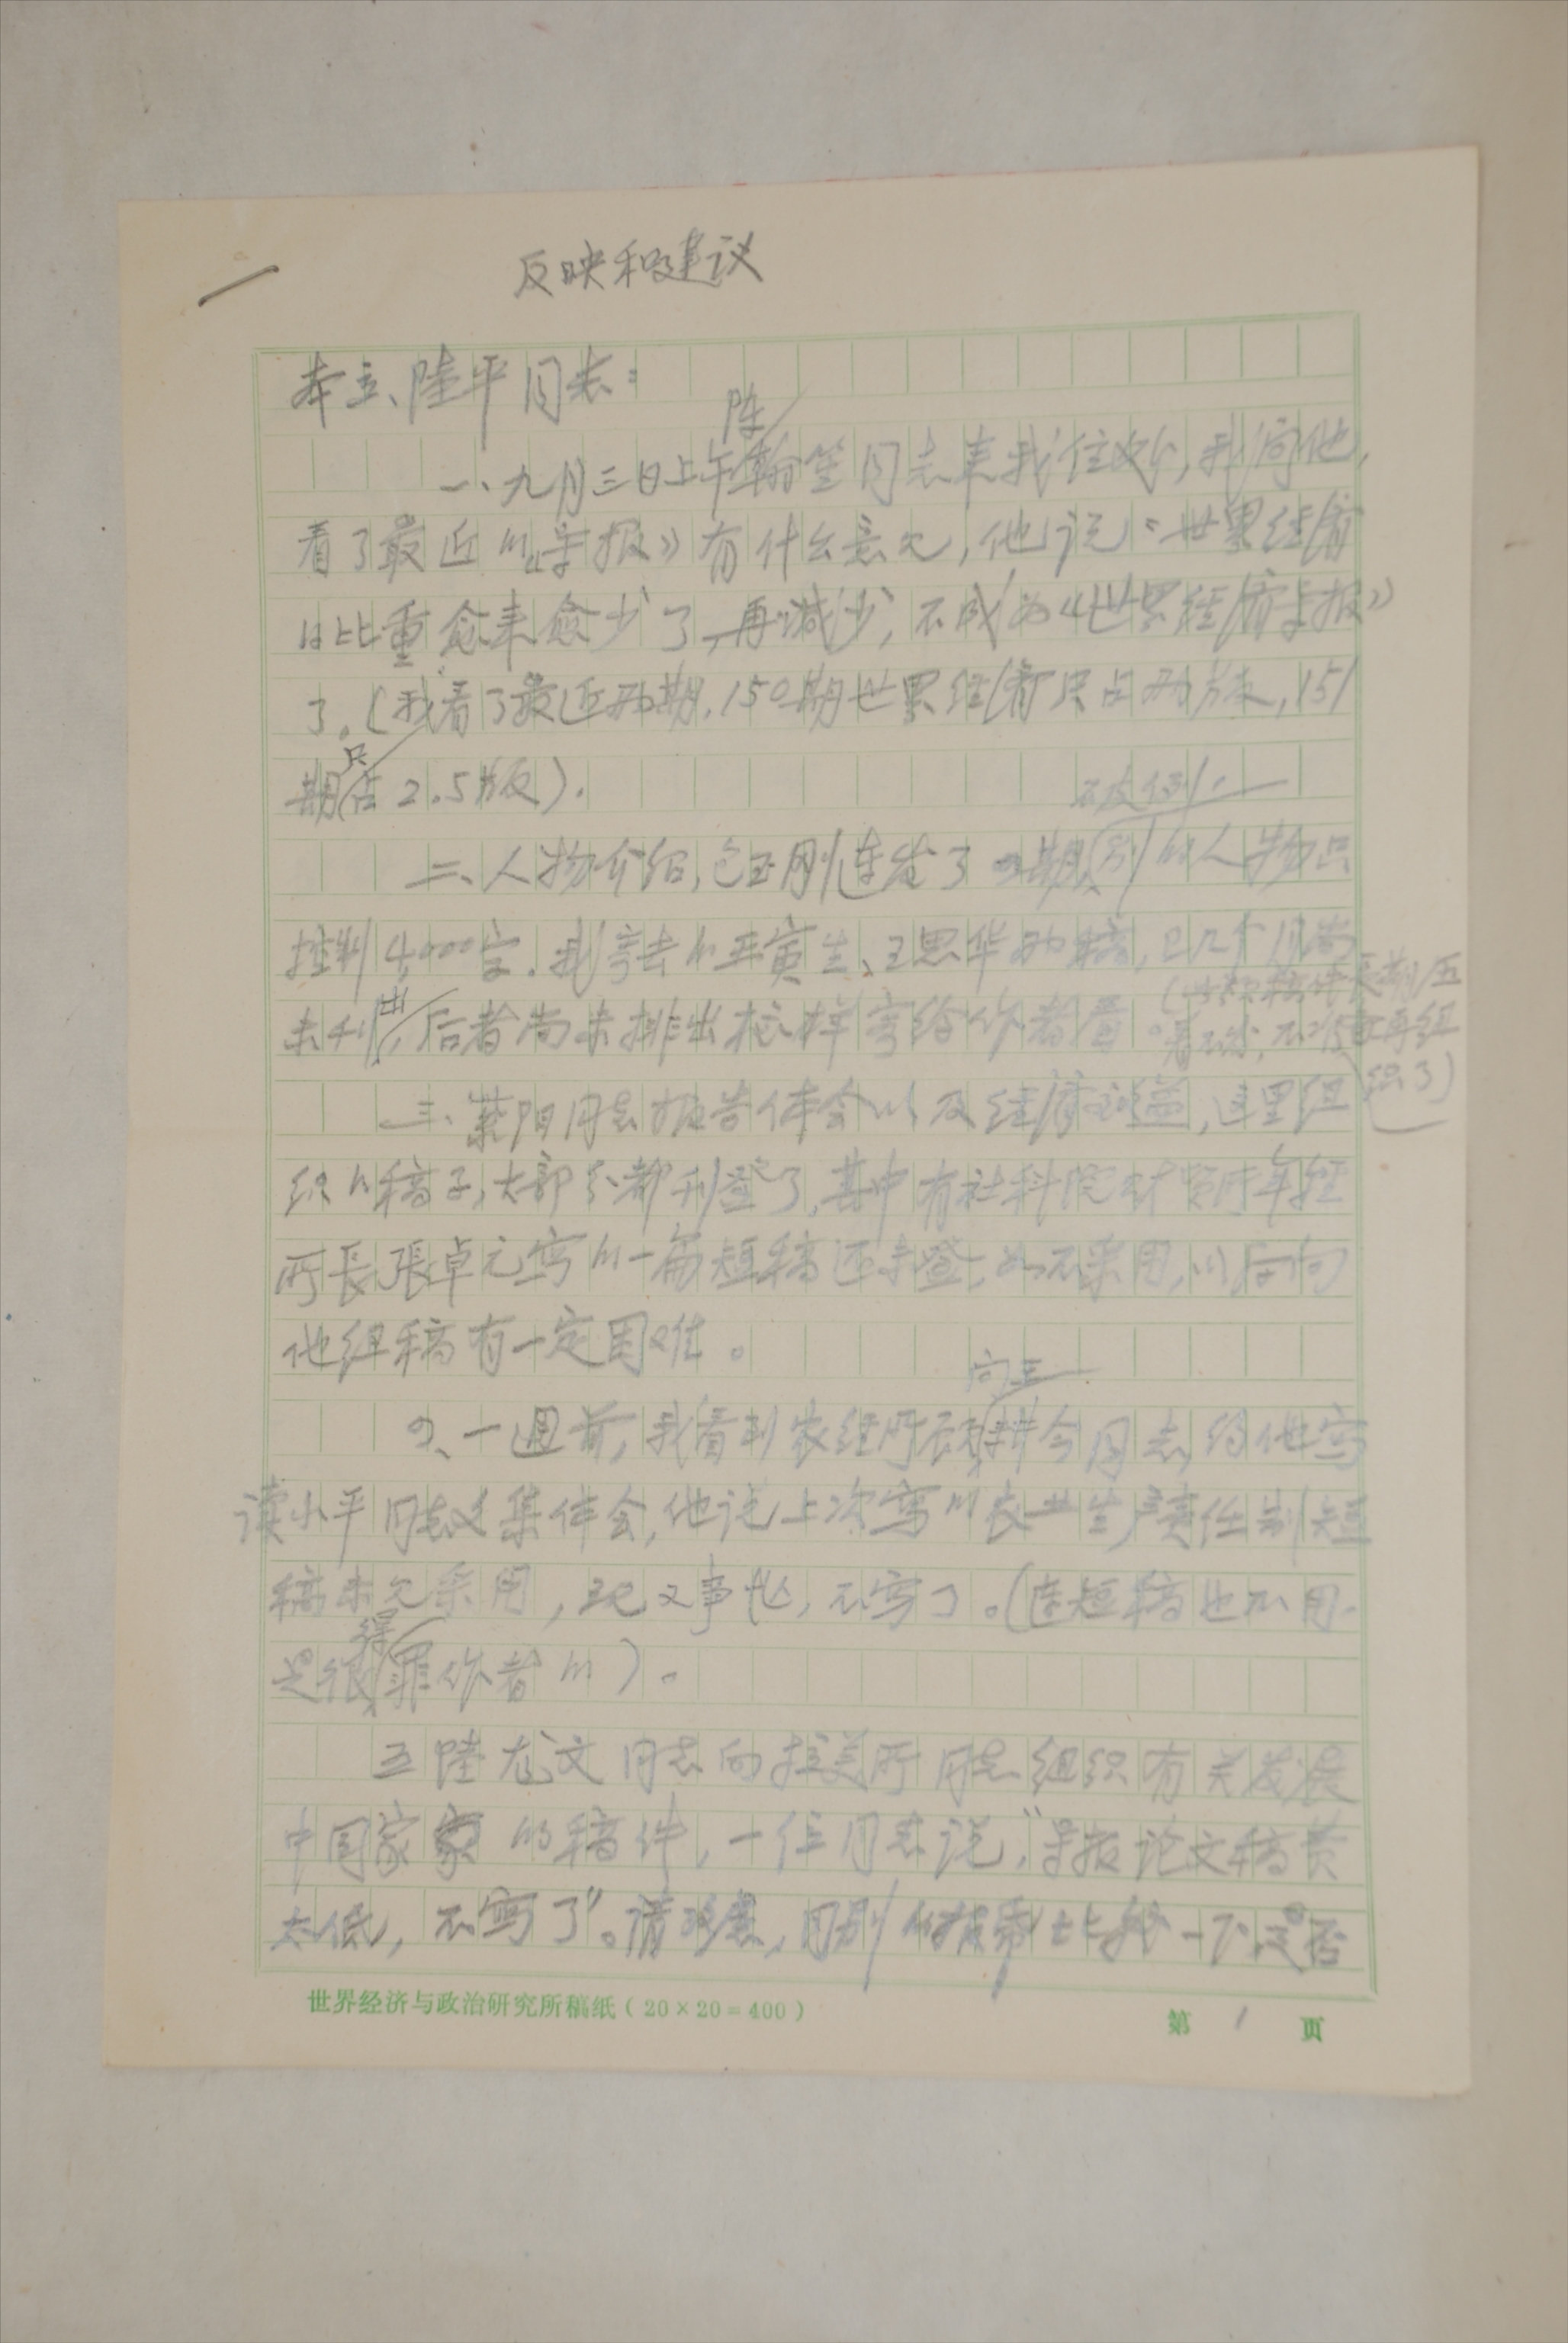 反映和建议
本立、陆平同志：
一、九月三日上午陈翰笙同志来我住处，我问他，
看了最近的《导报》有什么意见，他说：世界经济
的比重愈来愈少了，再减少，不成为《世界经济导报》
了。（我看了最近两期，150期世界经济只占两版，151
期只占2.5版）.
二、人物介绍，包玉刚连发了四期，不成例，别的人物只
控制4,000字。我寄去的王寅生、王思华两稿，已几个月尚
未刊出，后者尚未排出校样寄给作者看。（此类稿件长期压
着不发，不必再组
织了）
三、紫阳同志报告体会以及经济效益，这里组
织的稿子，大部分都刊登了，其中有社科院财贸所年轻
所长张卓元写的一篇短稿还未登，如不采用，以后向
他组稿有一定困难。
四、一週前，我看到农经所向王耕今同志约他写
读小平同志文集体会，他说上次写的农业生产责任制短
稿未见采用，现又事忙，不写了。（连短稿也不用，
是很得罪作者的）。
五陆龙文同志向拉美所同志组织有关发展
中国家的稿件，一位同志说，“导报论文稿费
太低，不写了”。请考虑，同别的报章比较一下，是否
世界经济与政治研究所稿纸（20×20=400）
第 1 页